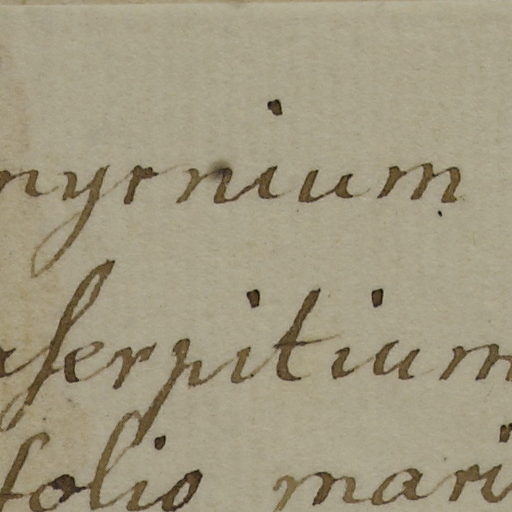 nyrnium
aſerpitium
folio mari